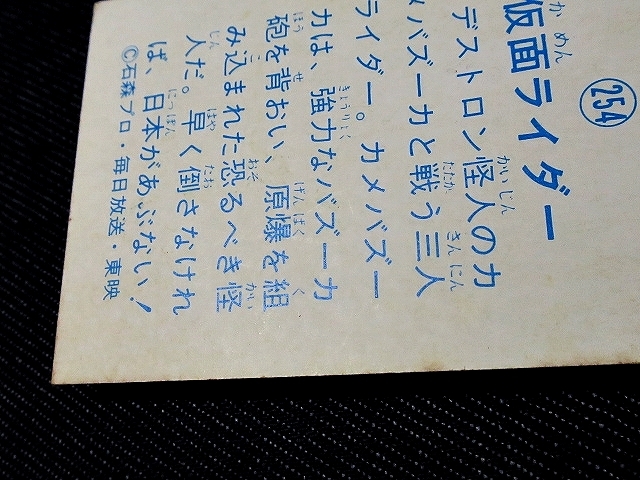 254
仮面ライダー
デストロン怪人のカ
メバズーカと戦う三人
ライダー。カメバズー
カは、強力なバズーカ
砲を背おい、原爆を組
み込まれた恐るべき怪
人だ。早く倒さなけれ
ば、日本があぶない！
©石森プロ・毎日放送・東映